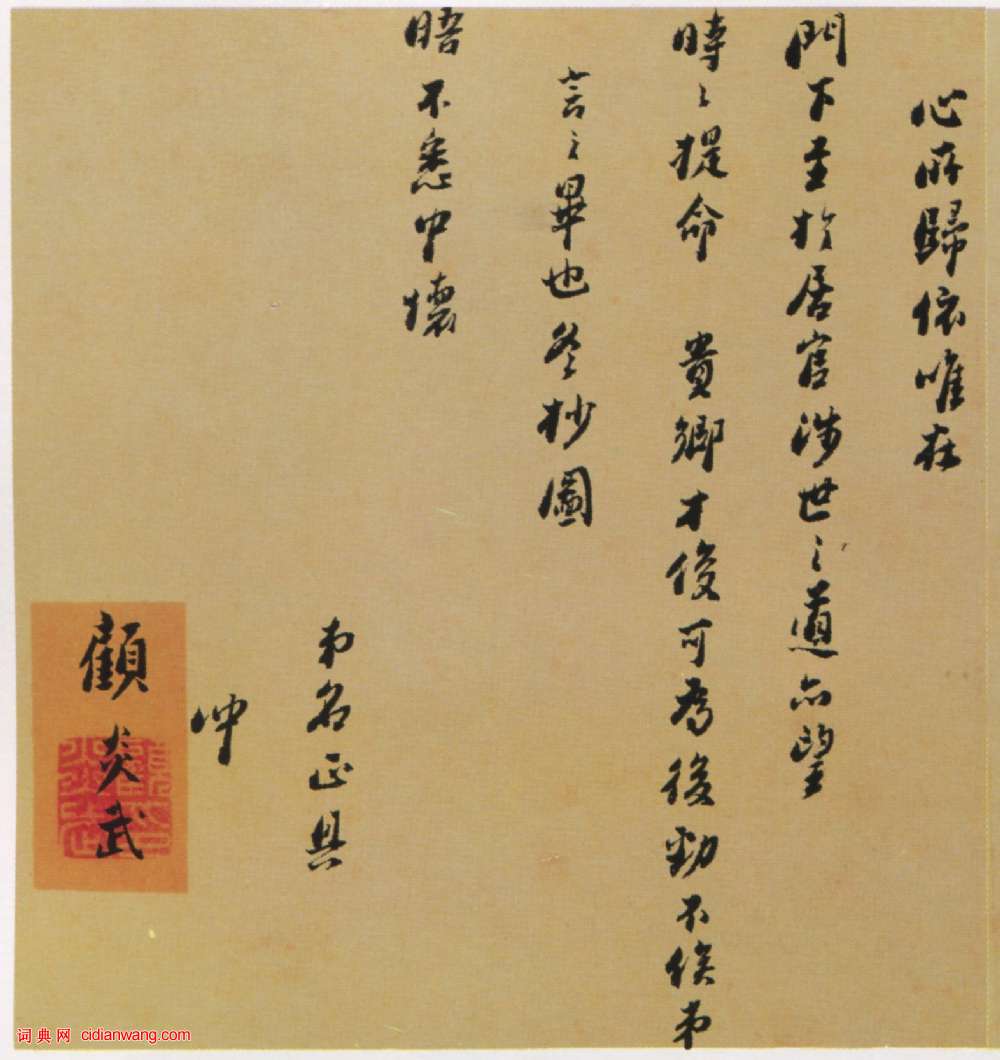 心所歸依唯在
門下至於居官涉世之道亦望
時〻提命 貴鄉才俊可為後勁不俟弟
言之畢也冬杪圖
晤不悉中懷
弟名正具
冲
顧炎武
词典网 cidianwang.com